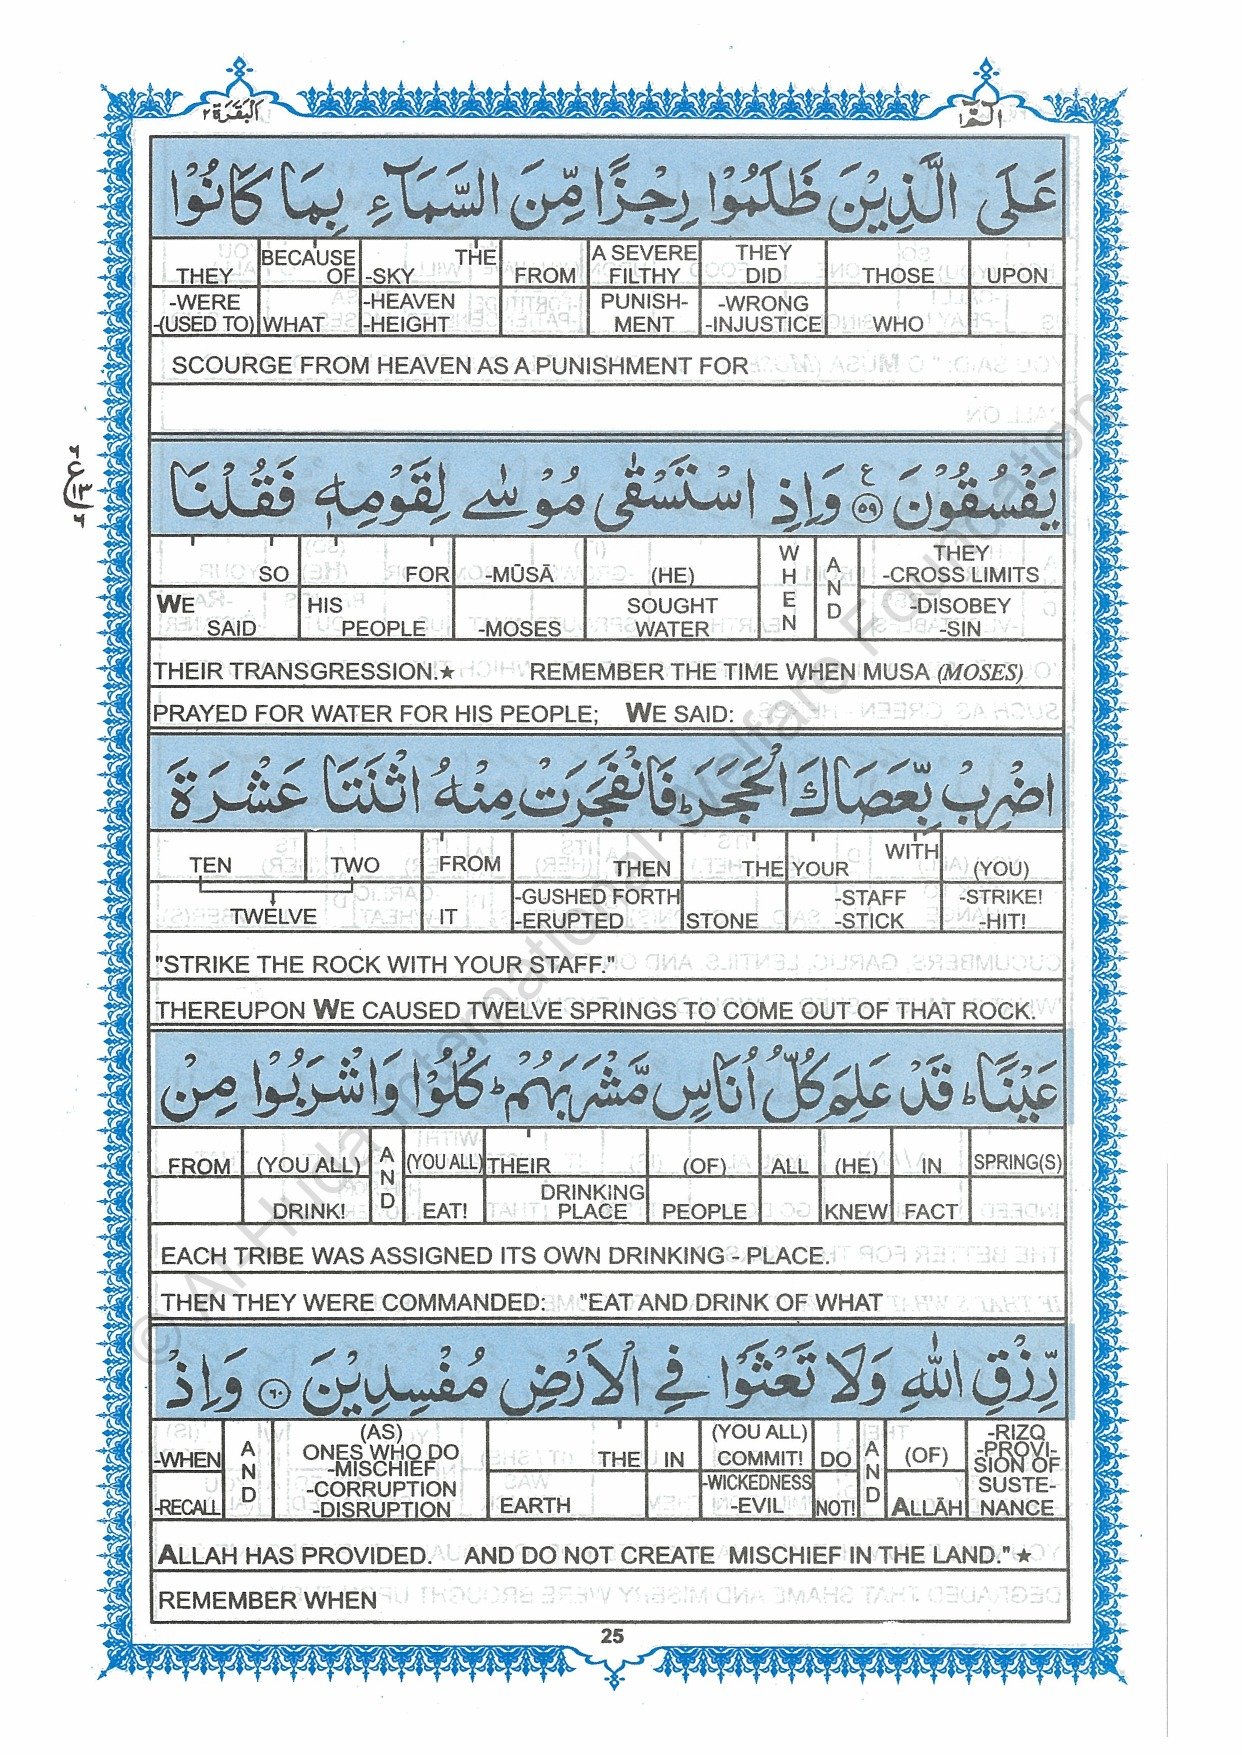 الٓمّٓ ١
اَلْبَقَرَة ٢
عَلَى الَّذِيْنَ ظَلَمُوْا رِجْزًا مِّنَ السَّمَآءِ بِمَا كَانُوْا
THEY BECAUSE OF THE -SKY FROM A SEVERE FILTHY THEY DID THOSE UPON
-WERE -(USED TO) WHAT -HEAVEN -HEIGHT PUNISH- MENT -WRONG -INJUSTICE WHO
SCOURGE FROM HEAVEN AS A PUNISHMENT FOR
يَفْسُقُوْنَ ۝٥٩ وَاِذِ اسْتَسْقٰى مُوْسٰى لِقَوْمِهٖ فَقُلْنَا
SO FOR -MŪSĀ (HE) WHEN AND THEY -CROSS LIMITS
WE SAID HIS PEOPLE -MOSES SOUGHT WATER -DISOBEY -SIN
THEIR TRANSGRESSION.★ REMEMBER THE TIME WHEN MUSA (MOSES)
PRAYED FOR WATER FOR HIS PEOPLE; WE SAID:
اضْرِبْ بِّعَصَاكَ الْحَجَرَ ؕ فَانْفَجَرَتْ مِنْهُ اثْنَتَا عَشْرَةَ
TEN TWO FROM THEN THE YOUR WITH (YOU)
TWELVE IT -GUSHED FORTH -ERUPTED STONE -STAFF -STICK -STRIKE! -HIT!
"STRIKE THE ROCK WITH YOUR STAFF."
THEREUPON WE CAUSED TWELVE SPRINGS TO COME OUT OF THAT ROCK.
عَيْنًا ؕ قَدْ عَلِمَ كُلُّ اُنَاسٍ مَّشْرَبَهُمْ ؕ كُلُوْا وَاشْرَبُوْا مِنْ
FROM (YOU ALL) AND (YOU ALL) THEIR (OF) ALL (HE) IN SPRING(S)
DRINK! EAT! DRINKING PLACE PEOPLE KNEW FACT
EACH TRIBE WAS ASSIGNED ITS OWN DRINKING - PLACE.
THEN THEY WERE COMMANDED: "EAT AND DRINK OF WHAT
رِّزْقِ اللّٰهِ وَلَا تَعْثَوْا فِي الْاَرْضِ مُفْسِدِيْنَ ۝٦٠ وَاِذْ
-WHEN AND (AS) ONES WHO DO -MISCHIEF THE IN (YOU ALL) COMMIT! DO AND (OF) -RIZQ -PROVI- SION OF
-RECALL -CORRUPTION -DISRUPTION EARTH -WICKEDNESS -EVIL NOT! ALLĀH SUSTE- NANCE
ALLAH HAS PROVIDED. AND DO NOT CREATE MISCHIEF IN THE LAND."★
REMEMBER WHEN
25
© Al-Huda International Welfare Foundation